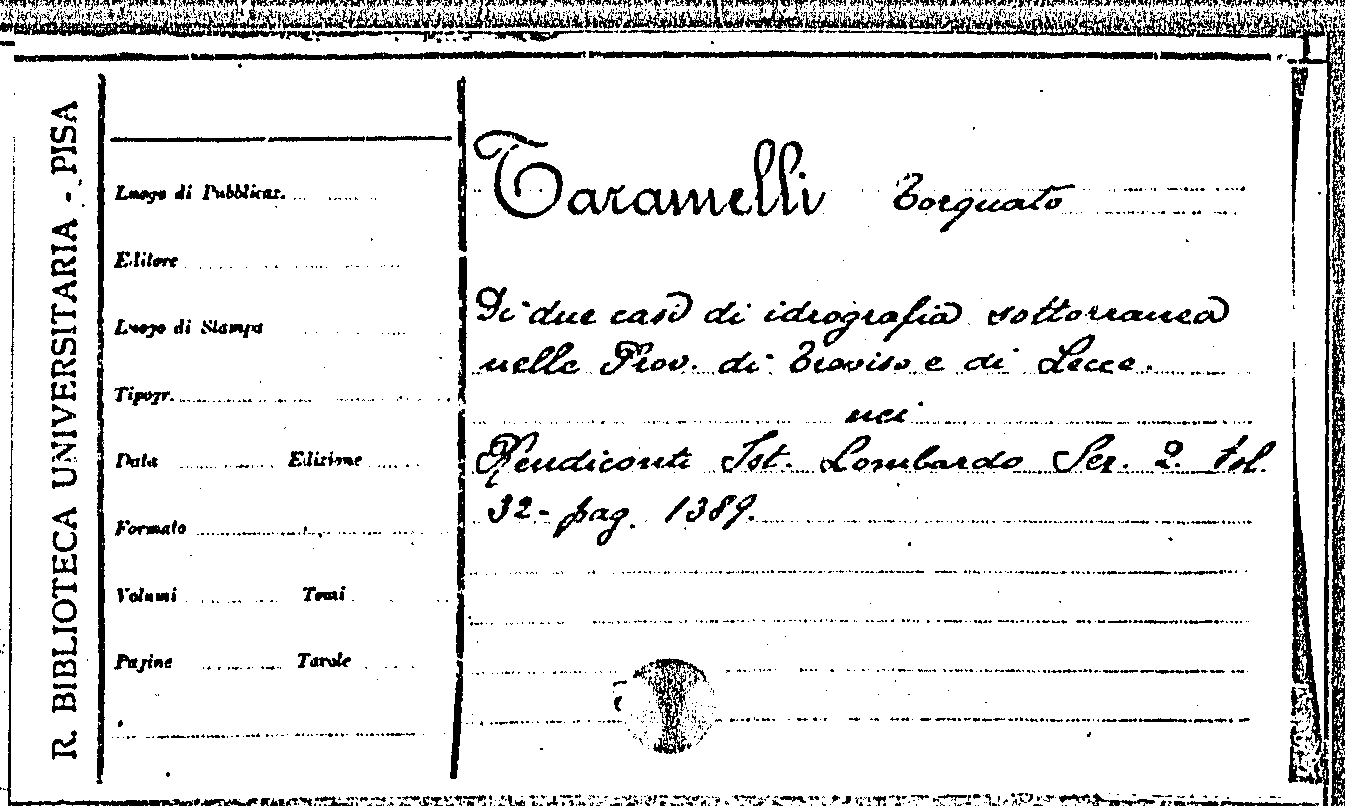 R. BIBLIOTECA UNIVERSITARIA - PISA
Luogo di Pubblicaz.
Editore
Luogo di Stampa
Tipogr.
Data Edizione
Formato
Volumi Tomi
Pagine Tavole
Taramelli Torquato
Di due casi di idrografia sotterranea
nelle Prov. di Treviso e di Lecce.
nei
Rendiconti Ist. Lombardo Ser. 2. Vol.
32- pag. 1389.